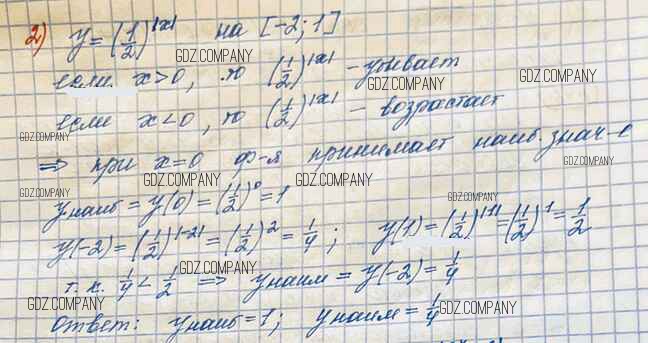 2) y = (1/2)^|x| на [-2; 1]
если x > 0, то (1/2)^|x| - убывает
если x < 0, то (1/2)^|x| - возрастает
⇒ при x = 0 ф-я принимает наиб. знач-е
yнаиб = y(0) = (1/2)^0 = 1
y(-2) = (1/2)^|-2| = (1/2)^2 = 1/4; y(1) = (1/2)^|1| = (1/2)^1 = 1/2
т. к. 1/4 < 1/2 ⇒ yнаим = y(-2) = 1/4
Ответ: yнаиб = 1; yнаим = 1/4
GDZ.COMPANY
GDZ.COMPANY
GDZ.COMPANY
GDZ.COMPANY
GDZ.COMPANY
GDZ.COMPANY
GDZ.COMPANY
GDZ.COMPANY
GDZ.COMPANY
GDZ.COMPANY
GDZ.COMPANY
GDZ.COMPANY
GDZ.COMPANY